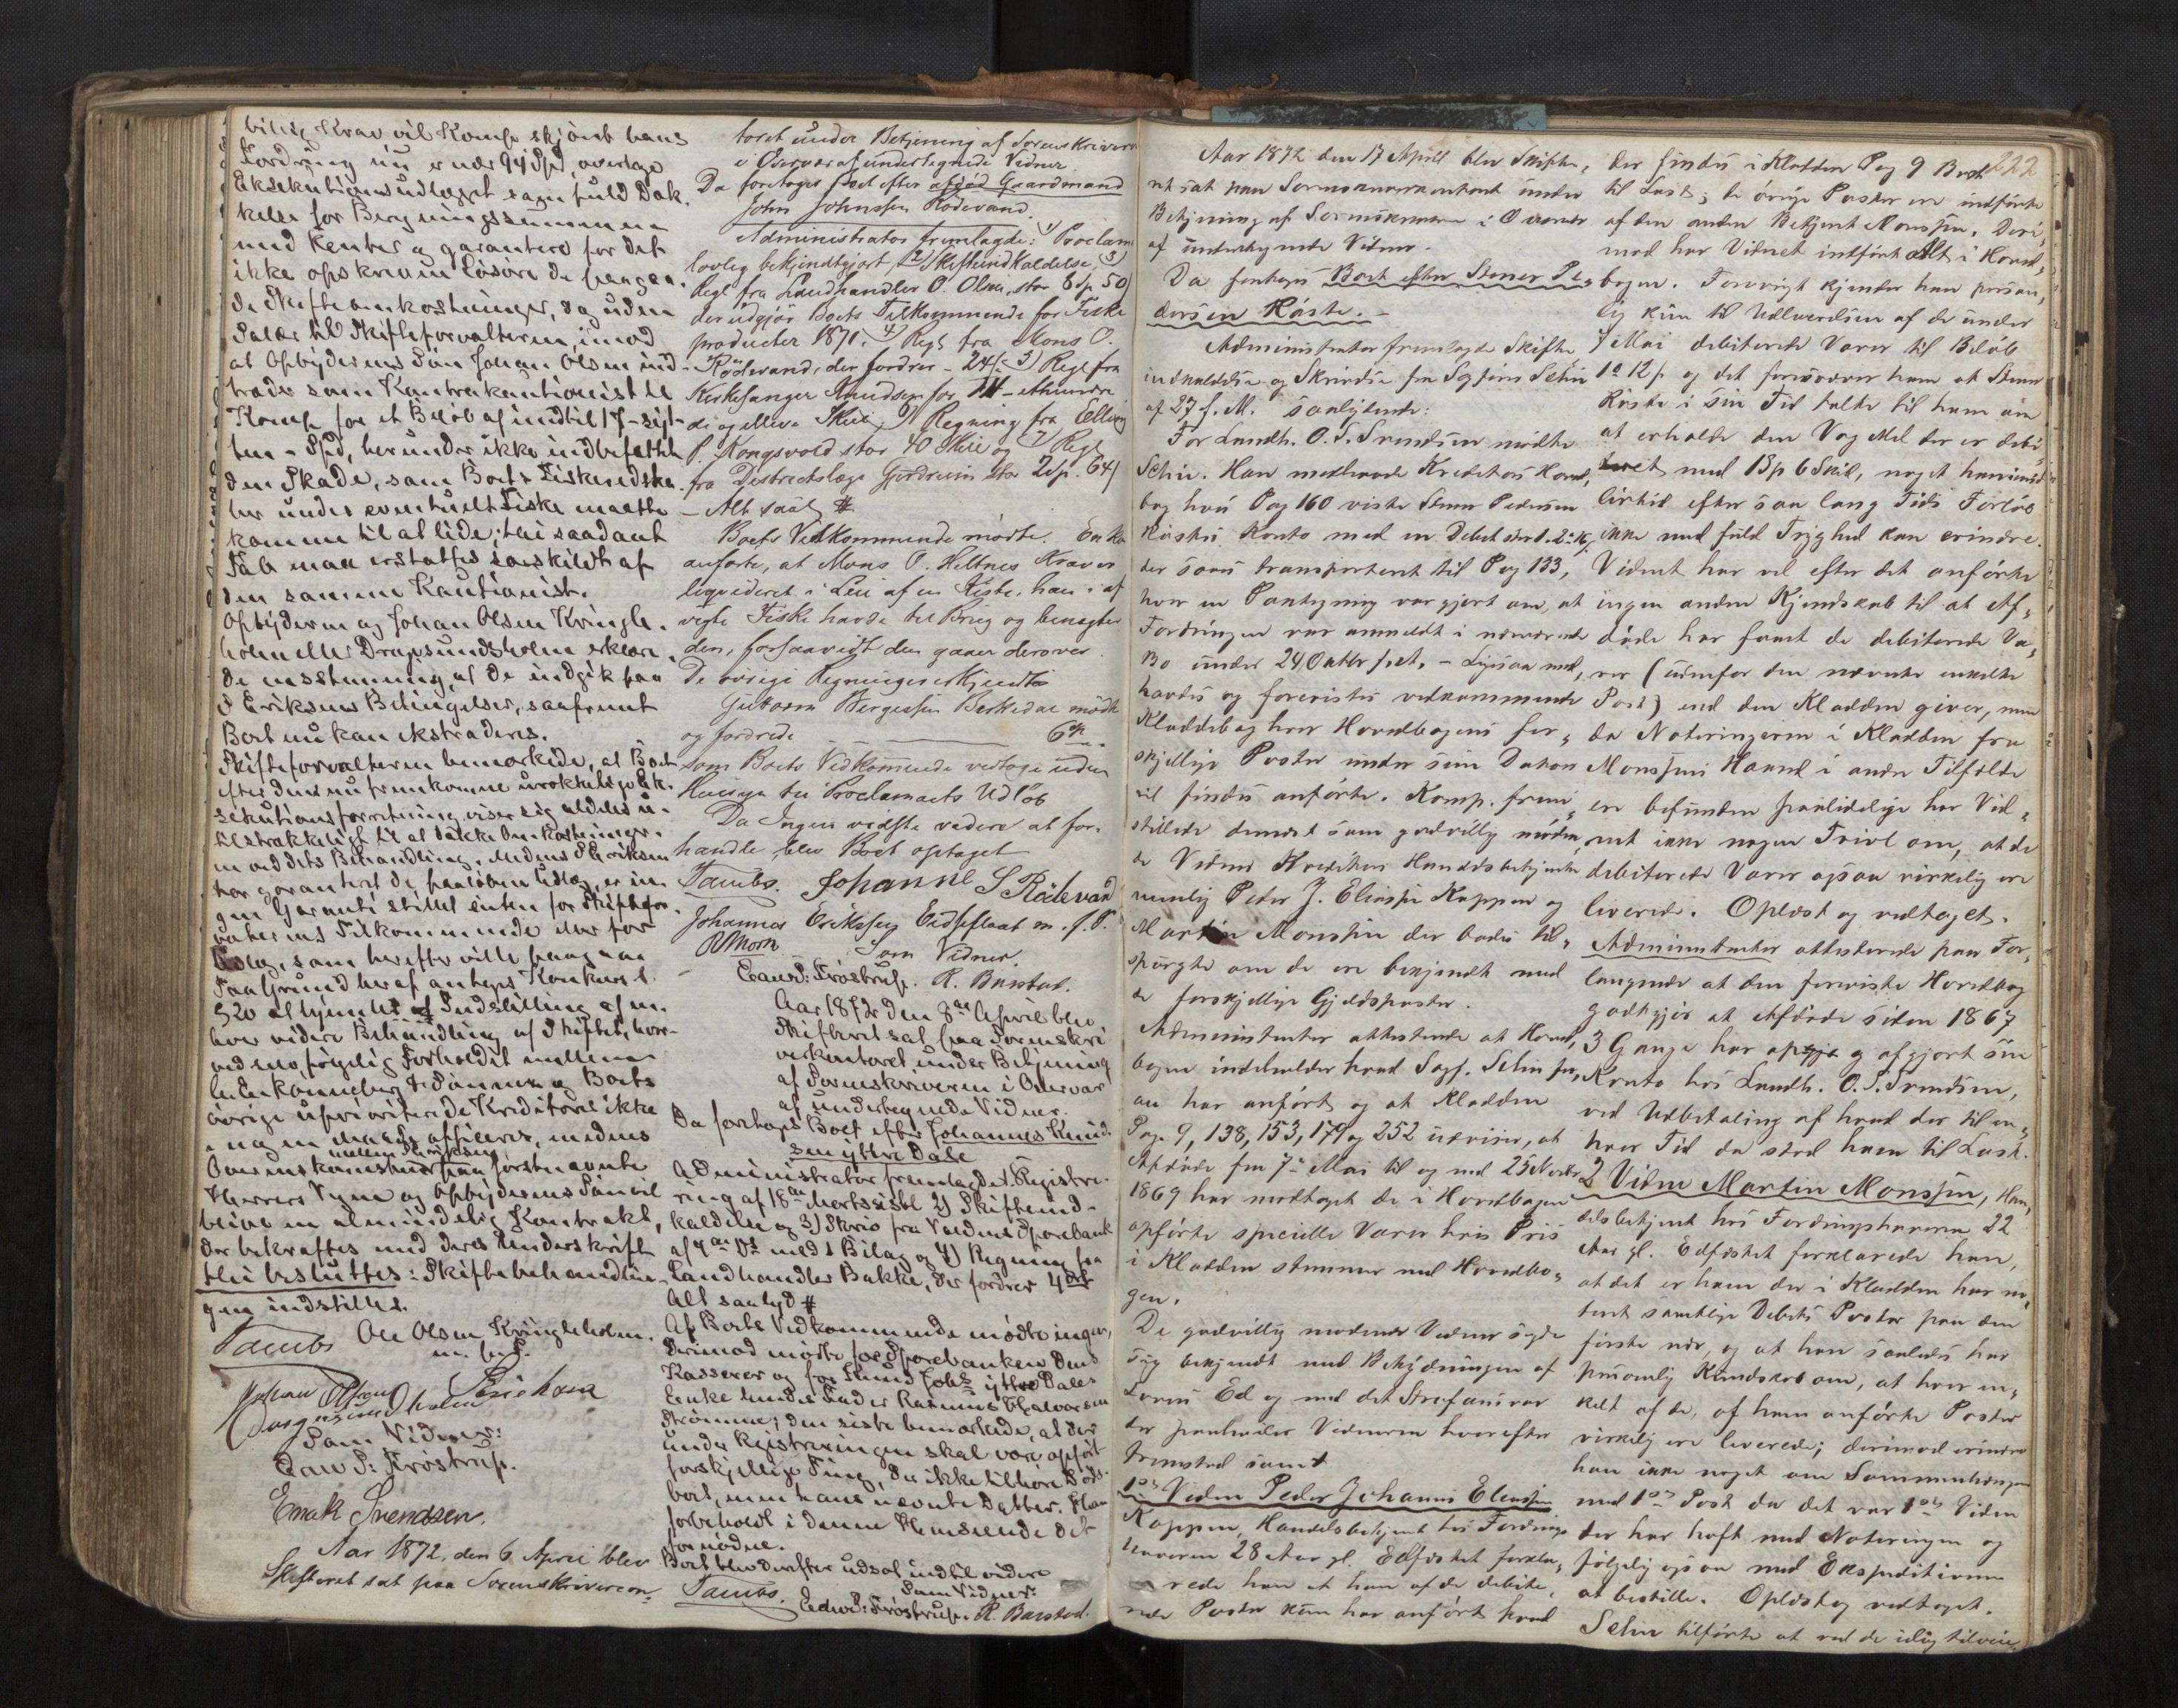 bilig Krav vil Komp. skjönt hans
Fordring nu er nær 94 Spd, overtage
Eksekutionsudlægget sagn fuld Dæk-
kelse for Bergningssummen
und Renter og garantere for det
ikke opskrevne Lösöre de
de Skifteomkostninger, dog uden
Salær til Skifteforvalteren, imod
at Opbyderens Sön Johan Olsen ind-
træder som Kontrakautionist til
Komp. for et Belöb af indtil 17 - syt-
ten - Spd, herunder ikke indbefattet
den Skade, som Boets Fiskeredska-
ber under eventuelt Fiske maatte
komme til at lide; thi saadant
Tab maa erstattes særskildt af
den samme Kautionist.
Opbyderen og Johan Olsen Kringle-
holm eller Dragsundsholm erklære-
de enstemmig, at de indgik paa
S Eriksens Betingelser, saafremt
Boet nu kan ekstraderes.
Skifteforvalteren bemærkede, at Boet
efter den nu fremkomne Ek-
sekutionsforretning viser sig aldeles u-
tilstrækkeligt til at dække Omkostninger-
ne ved dets Behandling. Medens S Eriksen
har garanteret de paaløbne Udlæg, er in-
gen Garanti stillet enten for Skiftefor-
valterens Tilkommende eller for
Udlæg, som herefter ville paagaa
Paa Grund heraf antages Konkursl.
§20 at hjemle Indstilling af en-
hver videre Behandling af Skiftet, hvor-
ved fölgelig Forholdet mellem
Boets
övrige uprioriterede Kreditorer ikke
i nogen Maade afficeres, medens
mellem Eriksen
Overenskomsten paa förstnævnte
Herrers Side og Opbyderens Sön vil
blive en almindelig Kontrakt,
der bekræftes med deres Underskrift
thi besluttes: Skiftebehandlin-
gen indstilles.
Tambs Ole Olsen Kringleholm
m. f. P.
Johan Olsen S Erichsen
Dragsundholm
Som Vidner:
Edvd: Tröstrup.
Emak Svendsen.
Aar 1872, den 6 April blev
Skifteret sat paa Sorenskriverkon-
toret under Betjening af Sorenskriveren
i Overvær af undertegnede Vidner
Da foretoges Boet efter afgød Gaardmand
John Johnssen Rödevand.
Administrator fremlagde: 1) Proclam
lovlig bekjendtgjort, 2) Skifteindkaldelse, 3)
Regl fra Landhandler O. Olsen, stor 6 Sp. 50
der udgjør Boets Tilkommende for Fiske
producter 1871. 4) Regl fra Mons O.
Rödevand, der fordrer - 24 s. 5) Regl fra
Kirkesanger Knudsen for 111 - ethundre
de og elleve Skill, 6) Regning fra Elling
P. Kongsvold stor 40 Skill og 7) Regl
fra Distrectslæge Gjerdrum stor 2 Sp. 64
- Alt saal #
Boets Vedkommende mödte. Enken
anførte, at Mons O. Heltnes Krav er
liqvideret i Leie af en Kiste, han i af
vigte Fiske havde til Brug og benægter
den, forsaavidt den gaaer derover.
De övrige Regninger erkjendtes
Guttorm Bergessen Berkedal mödte
og fordrede 6 Sp.
som Boets Vedkommende vedtoge uden
Hensyn til Proclamaets Udløb
Da Ingen vidste videre at for-
handle, blev Boet optaget
Tambs. Johanne S Rödevand
Johannes Erikssen Eidsflaat m. f. P.
Som Vidner.
Edvd: Tröstrup. R. Barstad.
Aar 1872 den 8de April blev
Skifteret sat paa Sorenskri
verkontoret under Betjening
af Sorenskriveren i Overvær
af undertegnede Vidner.
Da foretoges Boet efter Johannes Knud-
sen ytre Dale
Administrator fremlagde 1. Registre-
ring af 18de Marts sidstl. 2) Skifteind-
kaldelse og 3) Skriv fra Voldens Sparebank
af 4de ds med 1 Bilag og 4) Regning fra
Landhandler Bakke, der fordrer 4
Alt saalyd #
Af Boets Vedkommende mødte ingen,
derimod mødte for Sparebanken dens
Kasserer og for Knud Johs ytre Dales
Enke hendes Fader Rasmus Halvorsen
Strömme; den sidste bemærkede, at der
under Registreringen skal være opført
forskjellige Ting, der ikke tilhøre Döds-
boet, men hans nævnte Datter. Han
forbeholdt i denne Henseende det
fornødne.
Boet blev derefter udsat indtil videre
Som Vidner:
Tambs. Edvd: Tröstrup. R. Barstad.
222
Aar 1872 den 17 April blev Skifte-
ret sat paa Sorenskriverkontoret under
Betjening af Sorenskriveren i Overvær
af undertegnede Vidner.
Da foretoges Boet efter Stener Pe-
dersen Röste.
Administrator fremlagde Skifte
indkaldelse og Skrivelse fra Sagförer Schin
af 27 f. M. saalydende:
For Landh. O. S. Svendsen mødte
Schin. Han medhavde Kreditors Hoved-
bog hvis Pag 160 viste Steen Pedersen
Röstes Konto med en Debet stor
der saaes transporteret til Pag 133,
hvor en Paategning var gjort om, at
Fordringen var anmeldt i nærværende
Bo under 24 Oktbr f. A. - Ligesaa med-
havdes og foreviistes vedkommende
Kladdebog hvor Hovedbogens for-
skjellige Poster under sine Datoer
vil findes anförte. Komp. frem-
stillede dernæst som godvillig möden-
de Vidner Kreditors Handelsbetjente
nemlig Peder J. Eliassen Koppen og
Martin Monssen der bades til-
spurgte om de ere bekjendt med
de forskjellige Gjeldsposter.
Administrator attesterede at Hoved-
bogen indeholder hvad Sagf. Schin for-
an har anfört og at Kladden
Pag. 9, 138, 153, 179 og 252 udviser, at
Afdøde fra 7de Mai til og med 25 Novbr
1869 har modtaget de i Hovedbogen
opførte specielle Varer hvis Pris
i Kladden stemmer med Hovedbo-
gen.
De godvillig mødende Vidner sagde
sig bekjendt med Betydningen af
Lovens Ed og med det Strafansvar
der paahviler Vidnerne hvorefter
fremstod samt
1ste Vidne Peder Johannes Eliassen
Koppen, Handelsbetjent hos Fordrings
haveren 28 Aar gl. Edfæstet forkla-
rede han at han af de debite-
rede Poster kun har anfört hvad
der findes i Kladden Pag 9 Boet
til Last; de övrige Poster ere indførte
af den anden Betjent Monssen. Deri-
mod har Vidnet indført Alt i Hoved-
bogen. Forövrigt kjender han person-
lig kun til Udleverelsen af de under
7 Mai debiterede Varer til Beløb
12 s. og det forekommer ham at Steen
Röste i sin Tid talte til ham om
at erholde den Vog Mel der er debi-
teret med 1 Sp 6 Skil, noget han imid-
lertid efter saa lang Tids Forløb
ikke med fuld Tryghed kan erindre.
Vidnet har vel efter det anførte
ingen anden Kjendskab til at Af-
døde har faaet de debiterede Va-
rer (udenfor den nævnte enkelte
Post) end den Kladden giver, men
da Noteringerne i Kladden fra
Monssens Haand i andre Tilfælde
ere befunden paalidelige har Vid-
net ikke nogen Tvivl om, at de
debiterede Varer ogsaa virkelig ere
leverede. Oplæst og vedtaget.
Administrator attesterede paa For-
langende at den foreviste Hovedbog
godtgjör at Afdøde siden 1867
3 Gange har opgjo og afgjort sin
Konto hos Landh. O. S. Svendsen,
ved Udbetaling af hvad der til en-
hver Tid da stod ham til Last.
2 Vidne Martin Monssen, Han-
delsbetjent hos Fordringshaveren 22
Aar gl. Edfæstet forklarede han,
at det er ham der i Kladden har no-
teret samtlige Debets Poster paa den
förste nær, og at han saaledes har
personlig Kundskab om, at hver en-
kelt af de, af ham anførte Poster
virkelig ere leverede; derimod erindrer
han ikke noget om Sammenhængen
med 1ste Post da det var 1ste Vidne
der har haft med Noteringen og
fölgelig ogsaa med Ekspeditionen
at bestille. Oplæst og vedtaget.
Schin tilførte at ved de idag tilveie-